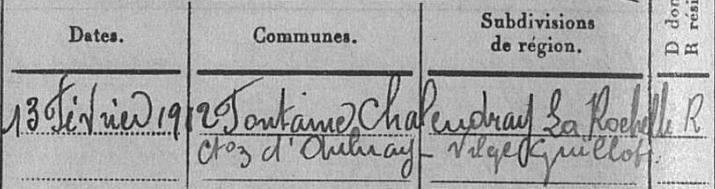 Dates.
Communes.
Subdivisions
de région.
D don
R rési
13 Février 1912 Fontaine Chalendray La Rochelle R
cton d'Aulnay - Vilge Guillot.